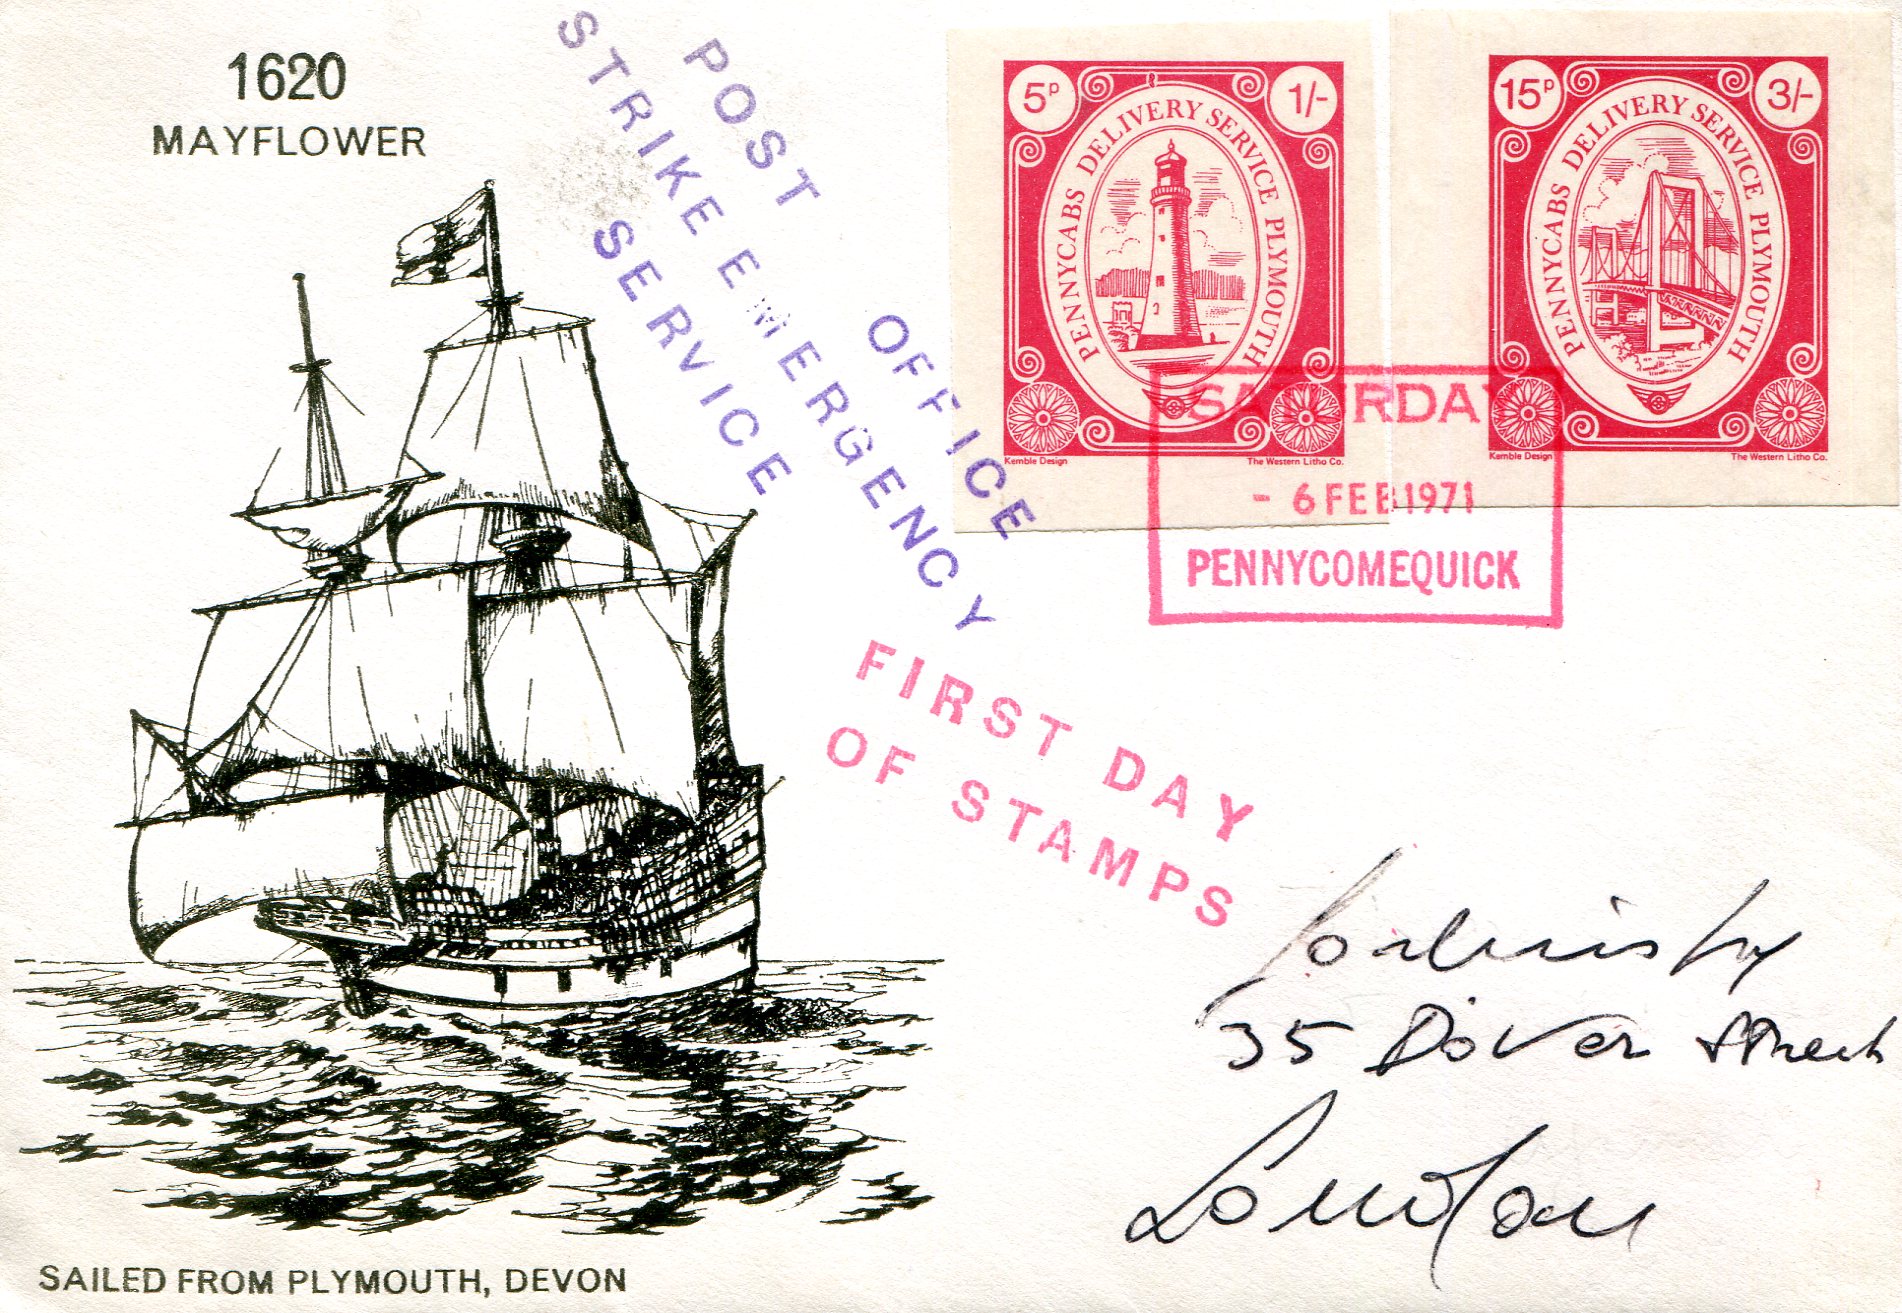 1620
MAYFLOWER
POST OFFICE
STRIKE EMERGENCY
SERVICE
5P 1/-
PENNYCABS DELIVERY SERVICE PLYMOUTH
Kemble Design The Western Litho Co.
15P 3/-
PENNYCABS DELIVERY SERVICE PLYMOUTH
Kemble Design The Western Litho Co.
SATURDAY
- 6 FEB 1971
PENNYCOMEQUICK
FIRST DAY
OF STAMPS
35 Dover Street
London
SAILED FROM PLYMOUTH, DEVON